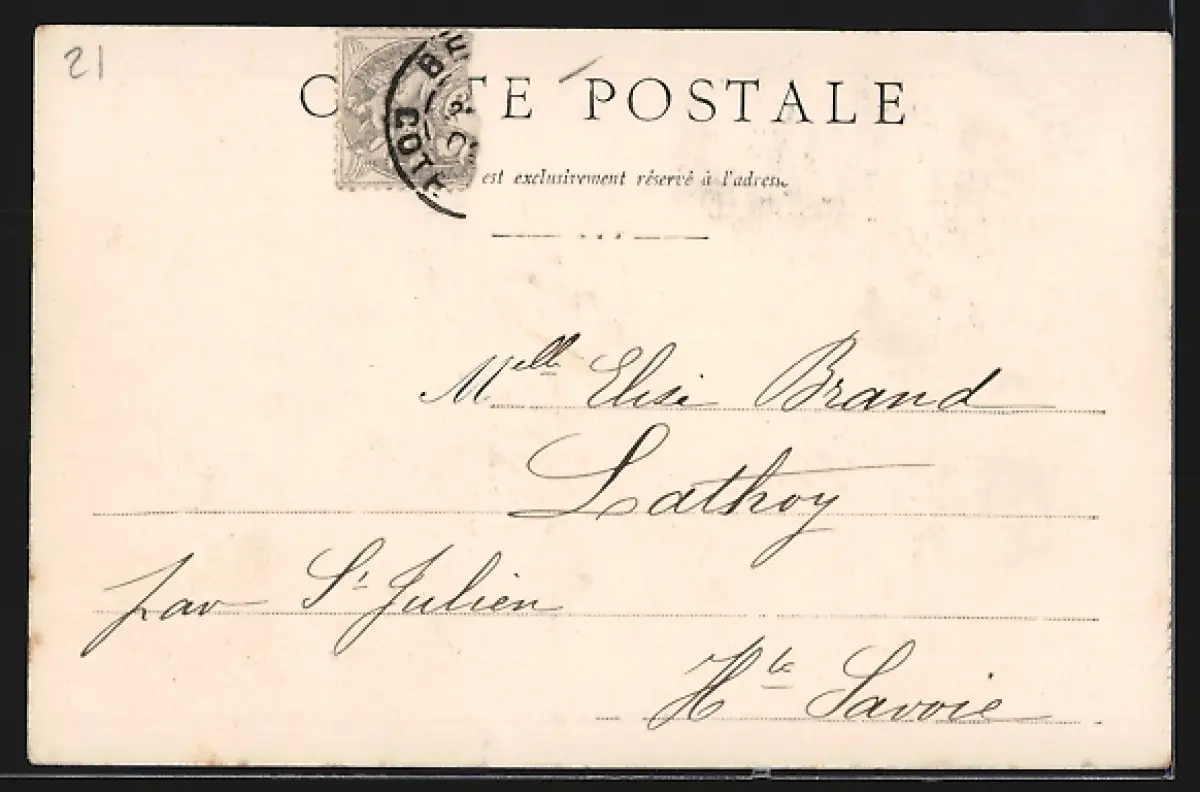 21
C TE POSTALE
est exclusivement réservé à l'adresse
BE
COTE
Melle Elise Brand
Lathoy
par St Julien
Hte Savoie